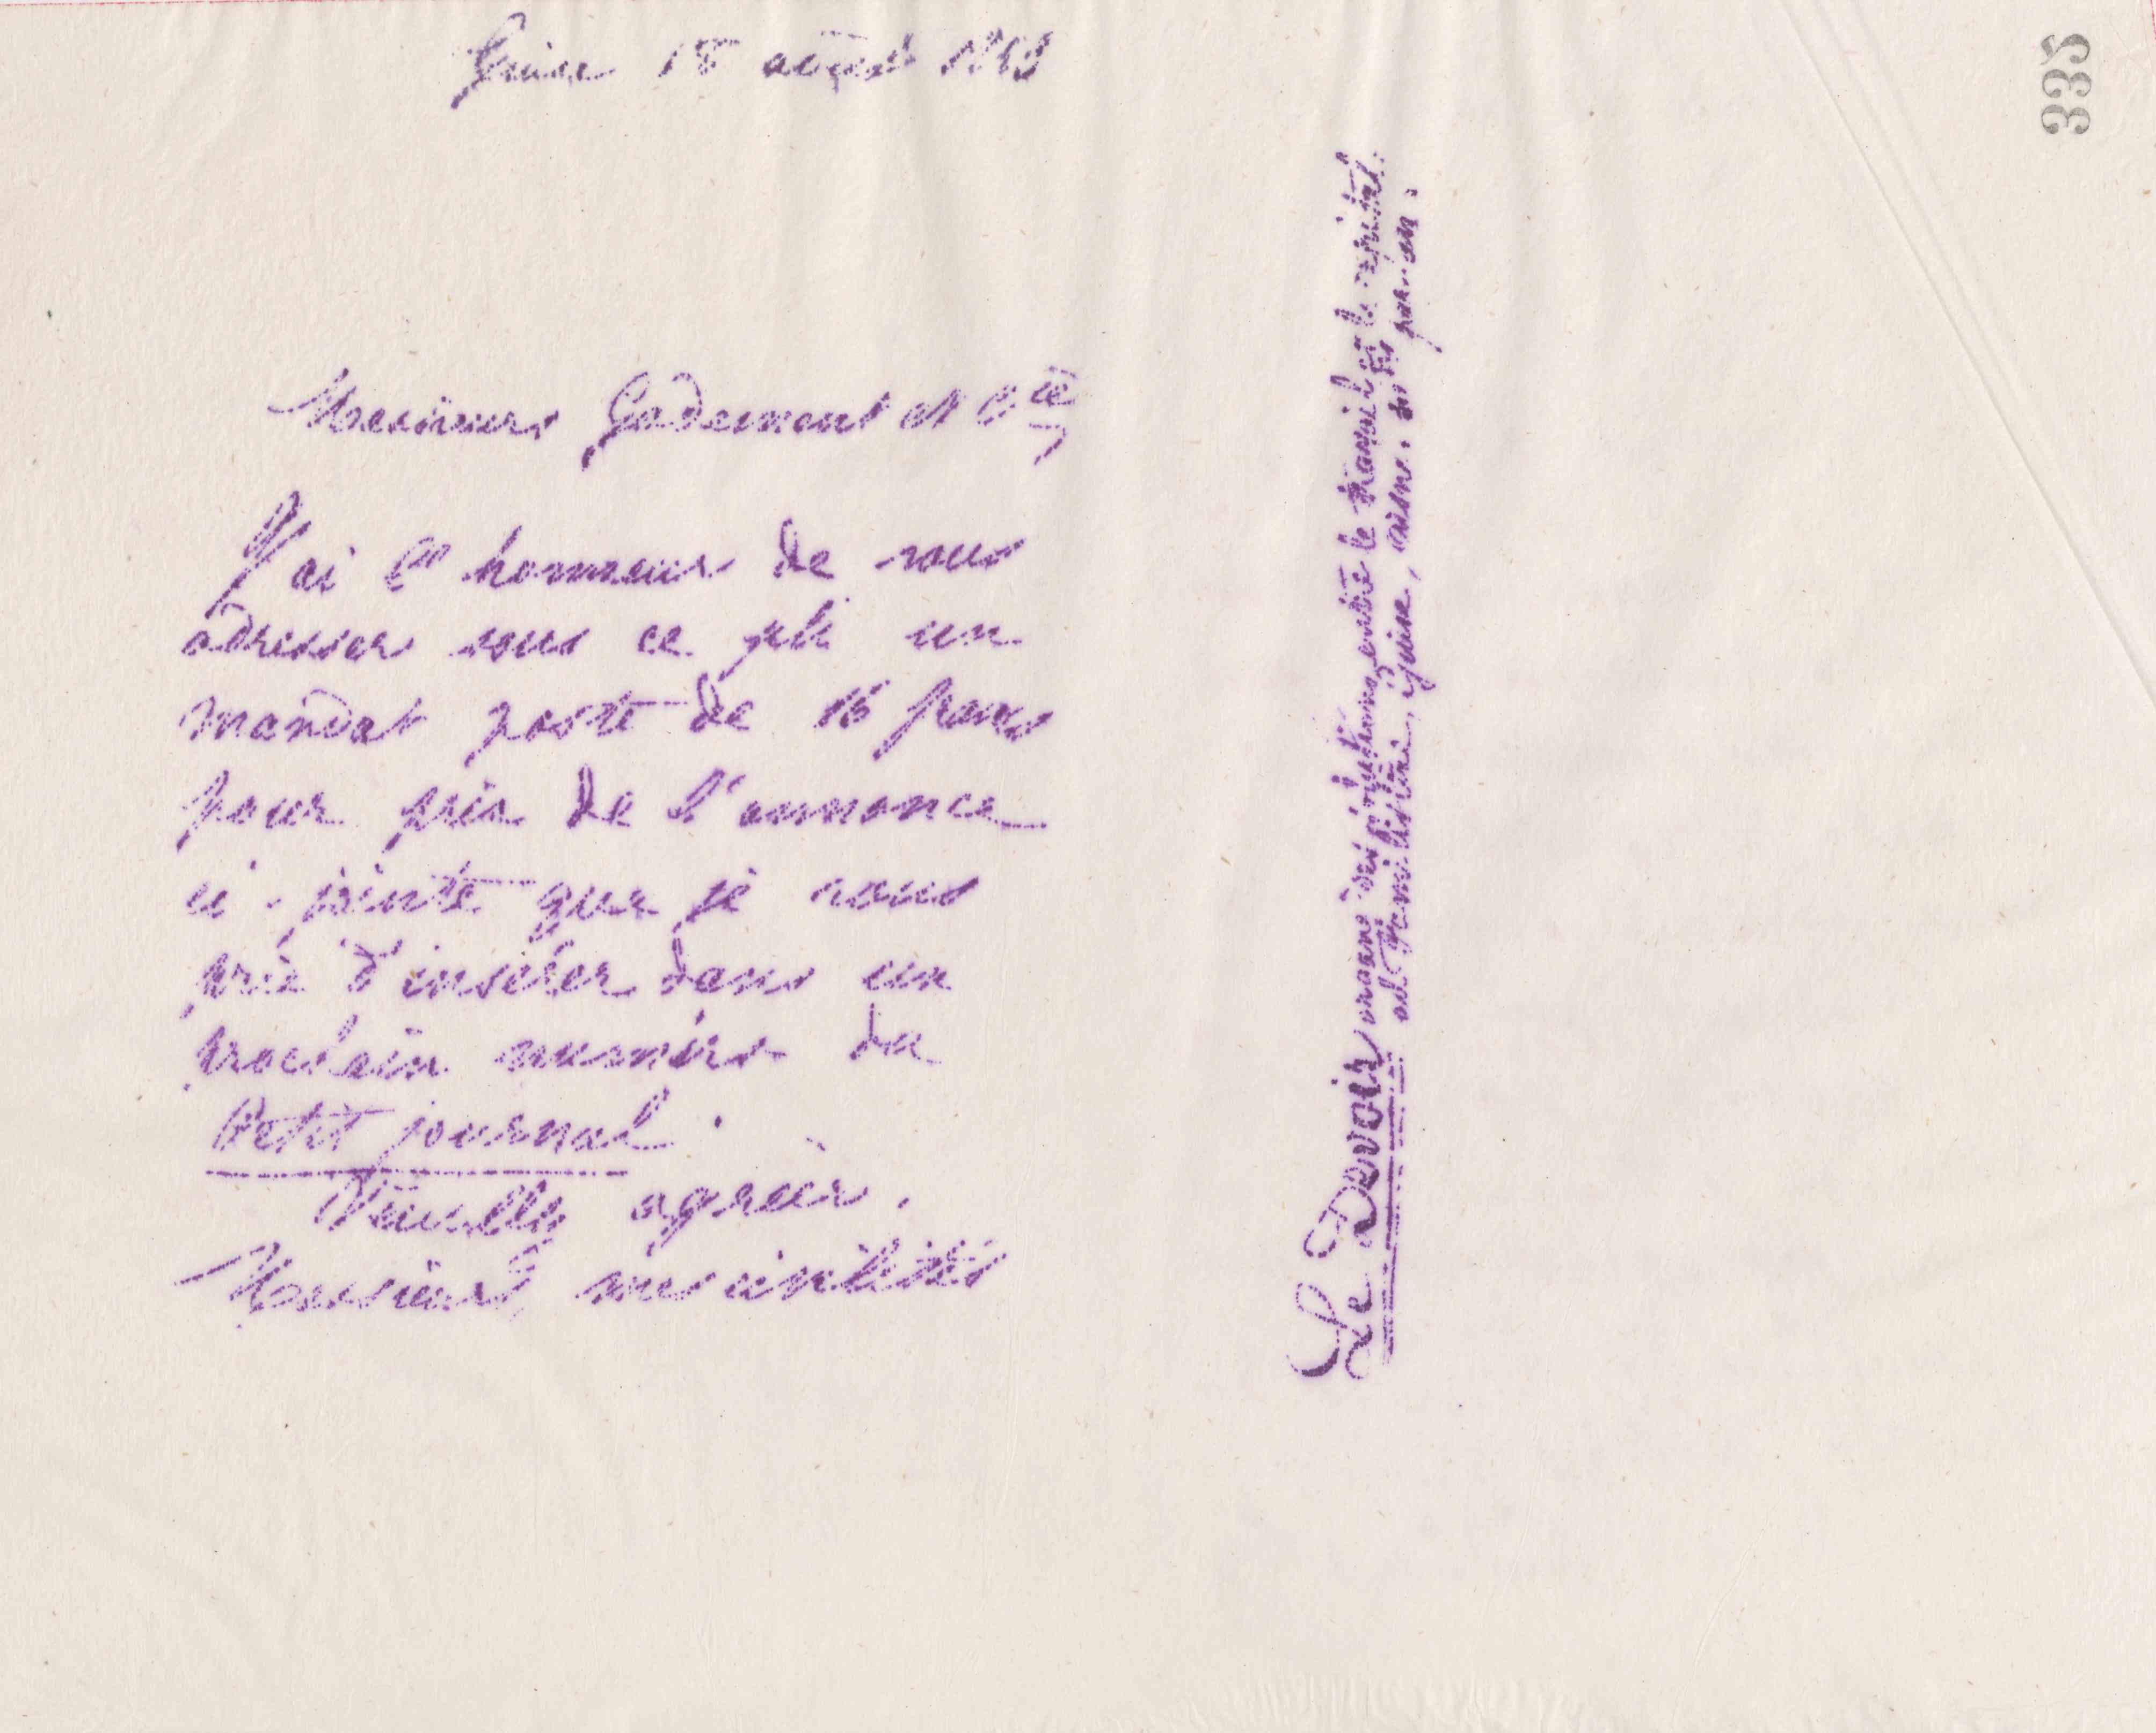 335
Guise 18 août 1883
Messieurs Godement et Cie
J'ai l'honneur de vous
adresser sous ce pli un
mandat poste de 16 francs
pour prix de l'annonce
ci-jointe que je vous
prie d'insérer dans un
prochain numéro du
Petit journal.
Veuillez agréer,
Messieurs, mes civilités
Le Devoir organe des entre le travail et le capital.
au Familistère, Guise, aisne. 10 frs par an.